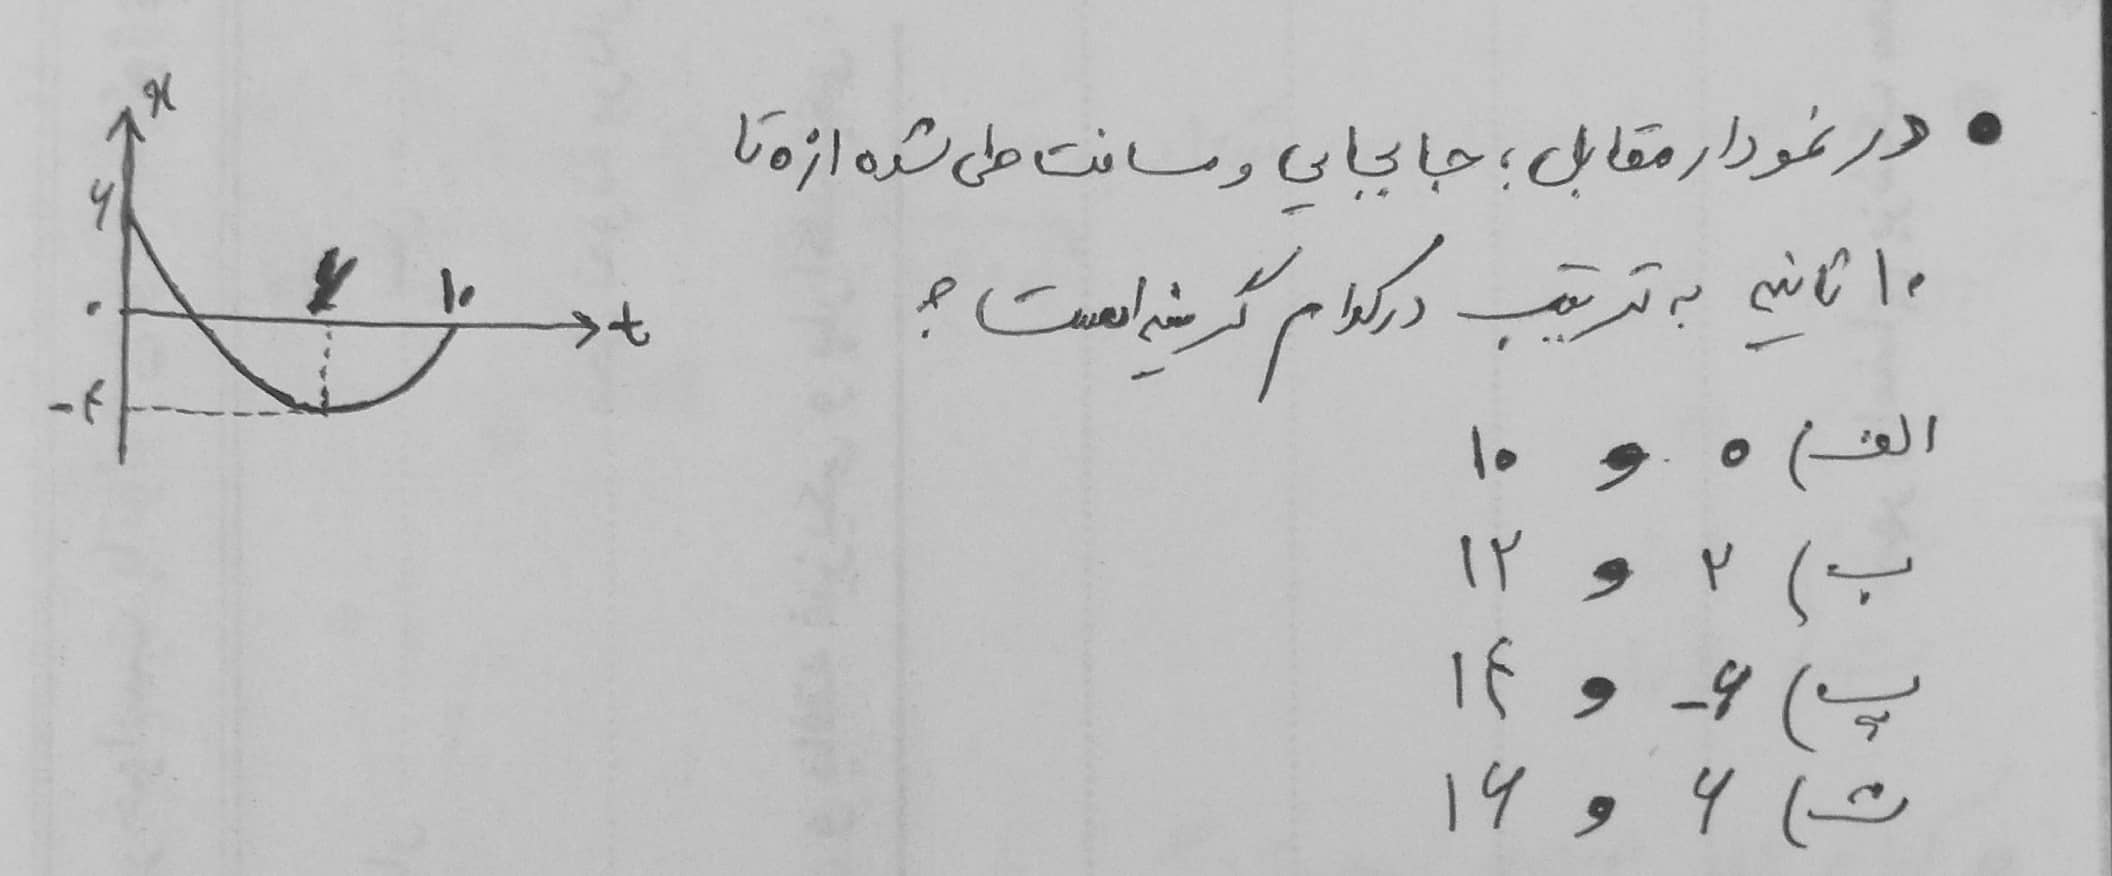 • در نمودار مقابل؛ جابجایی و مسافت طی شده از ۰ تا
۱۰ ثانیه به ترتیب در کدام گزینه است؟
الف) ۰ و ۱۰
ب) ۲ و ۱۲
پ) -۶ و ۱۴
ت) ۶ و ۱۶
x
۶
۰
۱۰
t
-۴